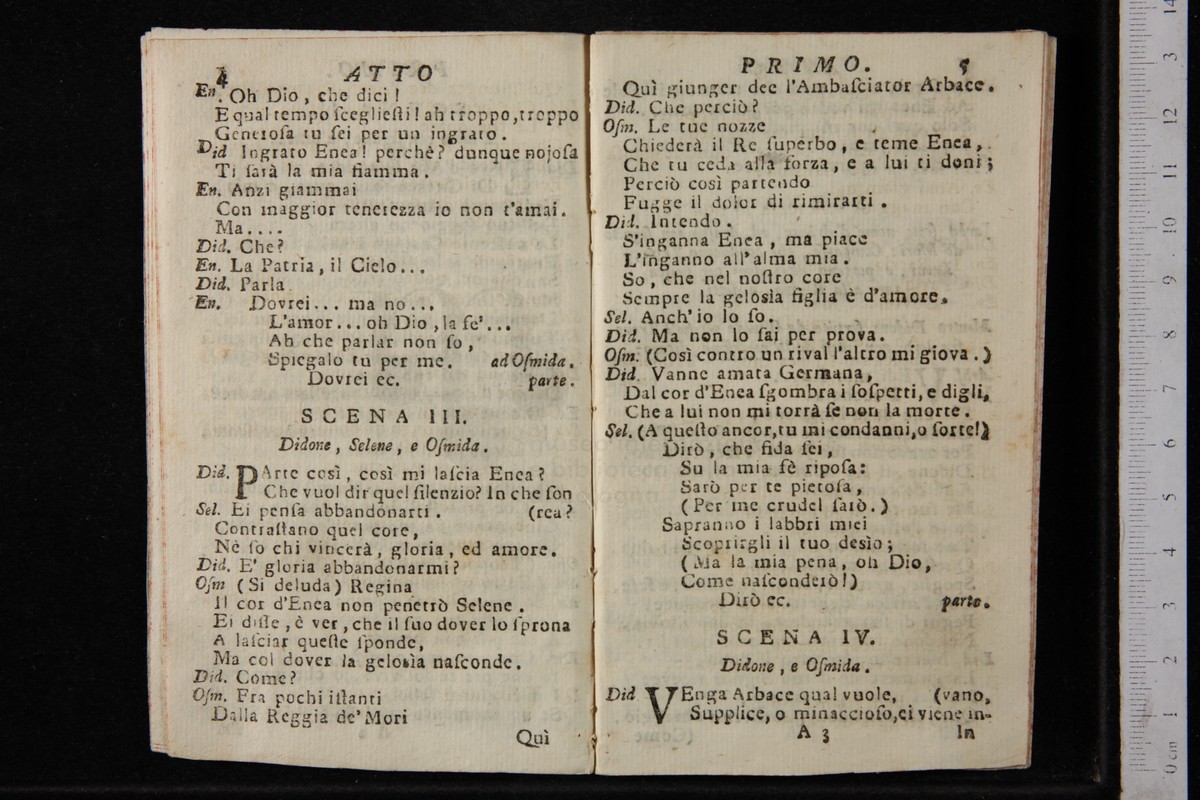 4 ATTO
En. Oh Dio, che dici!
E qual tempo ſceglieſti! ah troppo, troppo
Generoſa tu ſei per un ingrato.
Did Ingrato Enea! perchè? dunque nojoſa
Ti ſarà la mia fiamma.
En. Anzi giammai
Con maggior tenerezza io non t'amai.
Ma....
Did. Che?
En. La Patria, il Cielo...
Did. Parla
En. Dovrei... ma no...
L'amor... oh Dio, la fe'...
Ah che parlar non ſo,
Spiegalo tu per me. ad Oſmida.
Dovrei ec. parte.
SCENA III.
Didone, Selene, e Oſmida.
Did. PArte così, così mi laſcia Enea?
Che vuol dir quel ſilenzio? In che ſon
Sel. Ei penſa abbandonarti. (rea?
Contraſtano quel core,
Nè ſo chi vincerà, gloria, ed amore.
Did. E' gloria abbandonarmi?
Oſm (Si deluda) Regina
Il cor d'Enea non penetrò Selene.
Ei diſſe, è ver, che il ſuo dover lo ſprona
A laſciar queſte ſponde,
Ma col dover la gelosìa naſconde.
Did. Come?
Oſm. Fra pochi iſtanti
Dalla Reggia de' Mori
Quì
PRIMO. 5
Quì giunger dee l'Ambaſciator Arbace.
Did. Che perciò?
Oſm. Le tue nozze
Chiederà il Re ſuperbo, e teme Enea,
Che tu ceda alla forza, e a lui ti doni;
Perciò così partendo
Fugge il dolor di rimirarti.
Did. Intendo.
S'inganna Enea, ma piace
L'inganno all'alma mia.
So, che nel noſtro core
Sempre la gelosìa figlia è d'amore.
Sel. Anch'io lo ſo.
Did. Ma non lo ſai per prova.
Oſm. (Così contro un rival l'altro mi giova.)
Did. Vanne amata Germana,
Dal cor d'Enea ſgombra i ſoſpetti, e digli,
Che a lui non mi torrà ſe non la morte.
Sel. (A queſto ancor, tu mi condanni, o ſorte!)
Dirò, che fida ſei,
Su la mia fè ripoſa:
Sarò per te pietoſa,
(Per me crudel ſarò.)
Sapranno i labbri miei
Scoprirgli il tuo desìo;
(Ma la mia pena, oh Dio,
Come naſconderò!)
Dirò ec. parte.
SCENA IV.
Didone, e Oſmida.
Did VEnga Arbace qual vuole, (vano,
Supplice, o minaccioſo, ei viene in-
A 3 In